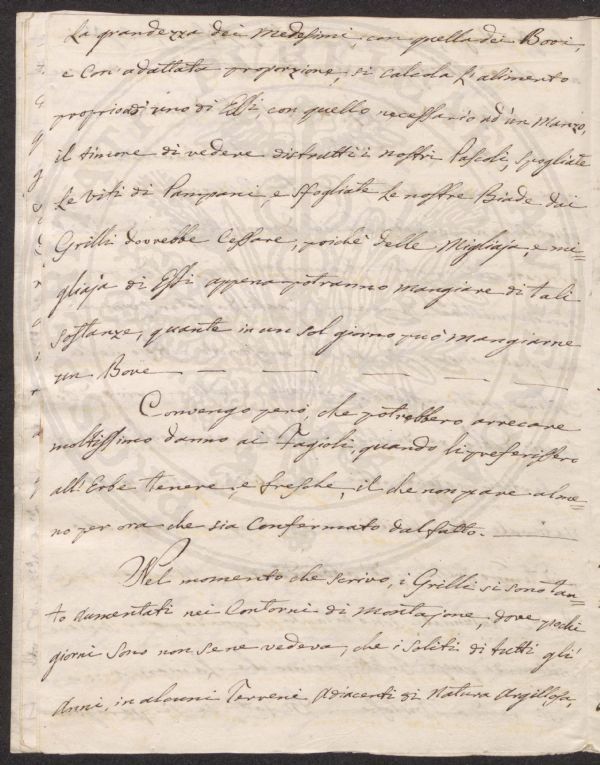 la grandezza dei Medesimi, con quella dei Bovi,
e con adattata proporzione, si calcola l'alimento
proprio ad uno di Essi, con quello necessario ad un Manzo,
il timore di vedere distrutti i nostri Pascoli, spogliate
le Viti di Pampani, e sfogliate le nostre Biade dai
Grilli dovrebbe cessare, poichè delle Migliaja, e mi=
gliaja di Essi appena potranno mangiare di tali
sostanze, quante in un sol giorno può mangiarne
un Bove — — — — —
Convengo però, che potrebbero arrecare
moltissimo danno ai Fagioli, quando li preferissero
all'Erbe tenere, e fresche, il che non pare alme=
no per ora che sia confermato dal fatto. —
Nel momento che scrivo, i Grilli si sono tan=
to aumentati nei Contorni di Montajone, dove pochi
giorni sono non se ne vedeva, che i soliti di tutti gli
Anni, in alcuni Terreni adiacenti di natura Argillosa,